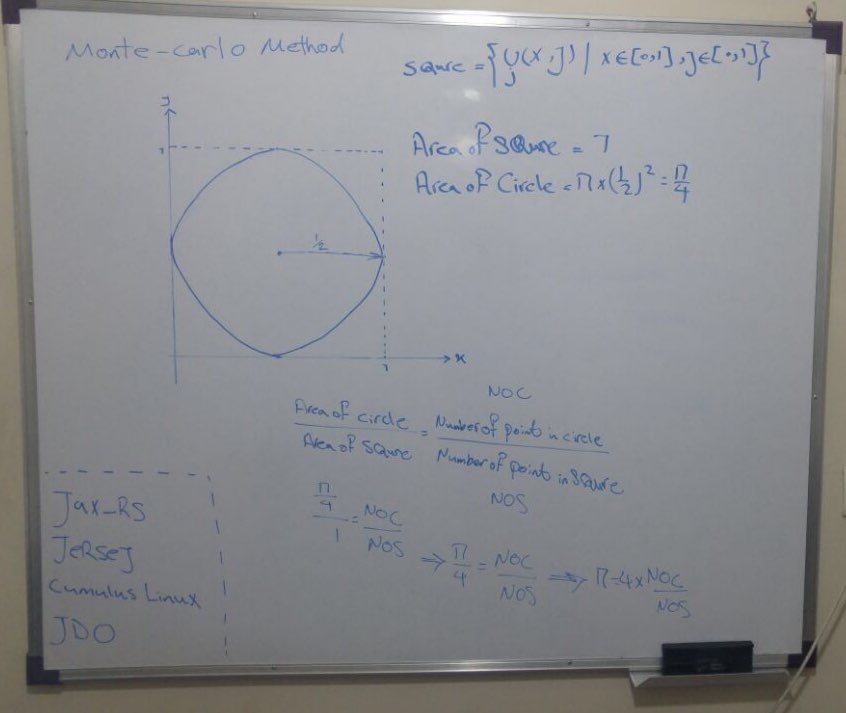 Monte-Carlo Method
Squre = {U(x,y) | x∈[0,1], y∈[0,1]}
y
1
1/2
x
1
Area of Squre = 1
Area of Circle = π × (1/2)² = π/4
NOC
Area of circle / Area of Squre = Number of point in circle / Number of point in Squre
NOS
π/4 / 1 = NOC / NOS ⇒ π/4 = NOC / NOS ⇒ π = 4 × NOC / NOS
Jax-RS
JeRSey
Cumulus Linux
JDO